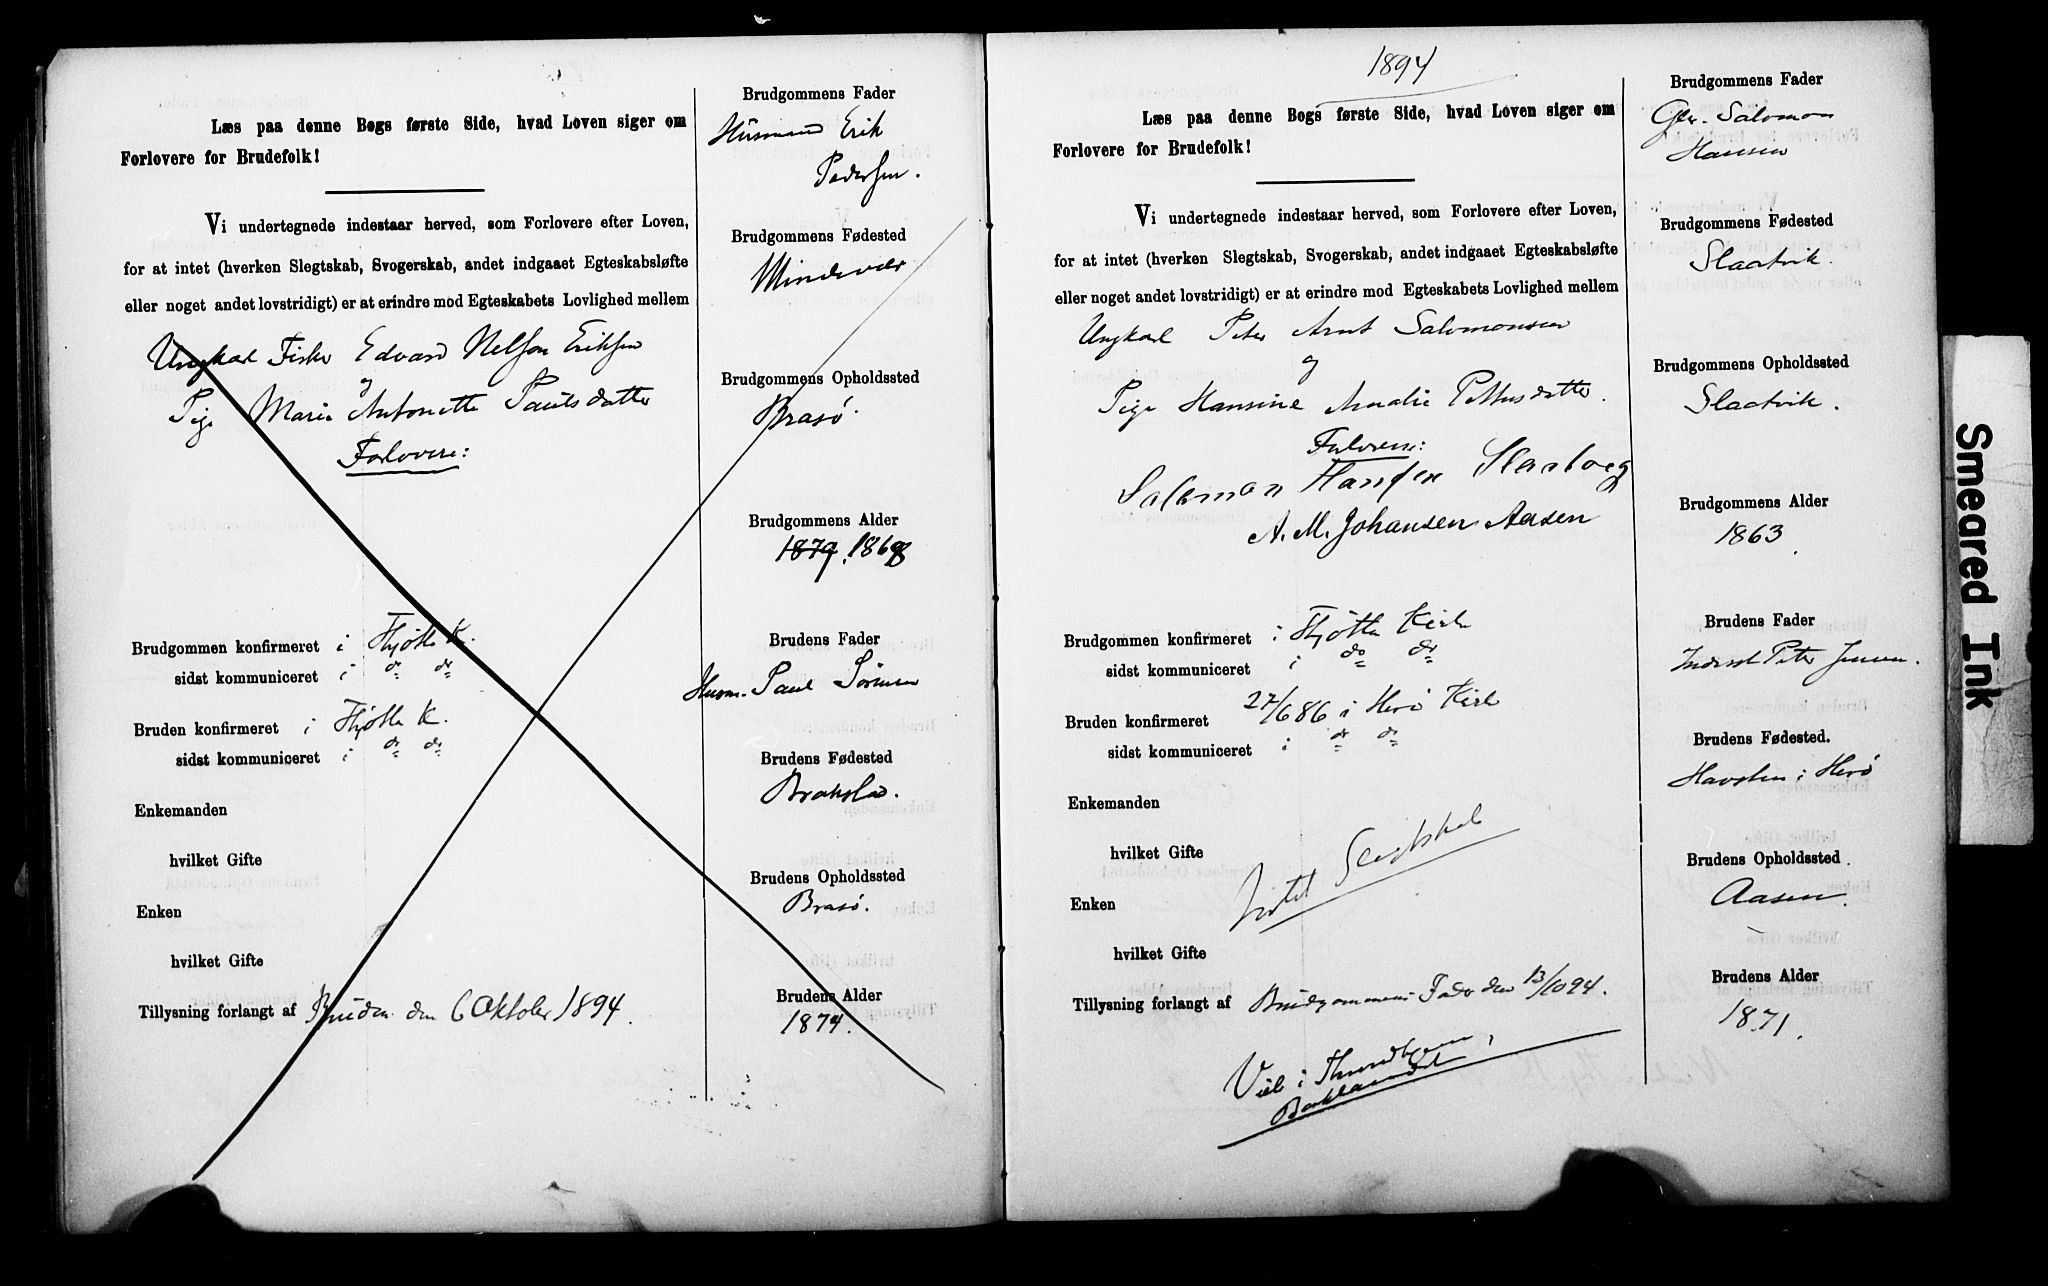 Læs paa denne Bogs første Side, hvad Loven siger om
Forlovere for Brudefolk!
Vi undertegnede indestaar herved, som Forlovere efter Loven,
for at intet (hverken Slegtskab, Svogerskab, andet indgaaet Egteskabsløfte
eller noget andet lovstridigt) er at erindre mod Egteskabets Lovlighed mellem
Ungkarl Fisker Edvard Nelson Eriksen
og
Pige Marie Antonette Paulsdatter
Forlovere:
Brudgommen konfirmeret i Thjøtta K.
sidst kommuniceret i do do
Bruden konfirmeret i Thjøtta K.
sidst kommuniceret i do do
Enkemanden
hvilket Gifte
Enken
hvilket Gifte
Tillysning forlangt af Bruden den 6 Oktober 1894.
Brudgommens Fader
Husmand Erik
Pedersen.
Brudgommens Fødested
Mindevær
Brudgommens Opholdssted
Brasø.
Brudgommens Alder
1879. 1868
Brudens Fader
Husm. Paul Sørensen
Brudens Fødested
Brudens Opholdssted
Brasø.
Brudens Alder
1874.
1894
Læs paa denne Bogs første Side, hvad Loven siger om
Forlovere for Brudefolk!
Vi undertegnede indestaar herved, som Forlovere efter Loven,
for at intet (hverken Slegtskab, Svogerskab, andet indgaaet Egteskabsløfte
eller noget andet lovstridigt) er at erindre mod Egteskabets Lovlighed mellem
Ungkarl Peter Arnt Salomonsen
og
Pige Hansine Amalie Pettersdatter.
Forlovere:
Salomon Hansen
A. M. Johansen Aasen
Brudgommen konfirmeret i Thjøtta Kirke
sidst kommuniceret i do do
Bruden konfirmeret 27/6 86 i Herø Kirke
sidst kommuniceret i do do
Enkemanden
hvilket Gifte
Intet Slegtskab
Enken
hvilket Gifte
Tillysning forlangt af Brudgommens Fader den 13/10 94.
Viet i
Brudgommens Fader
Gbr. Salomon
Hansen
Brudgommens Fødested
Slaatvik.
Brudgommens Opholdssted
Slaatvik.
Brudgommens Alder
1863
Brudens Fader
Inderst Peter Jensen.
Brudens Fødested.
Havsten i Herø
Brudens Opholdssted
Aasen.
Brudens Alder
1871.
Smeared Ink